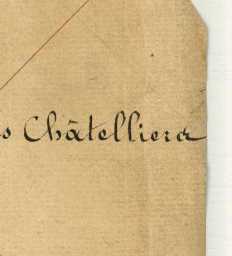 s Châtelliers